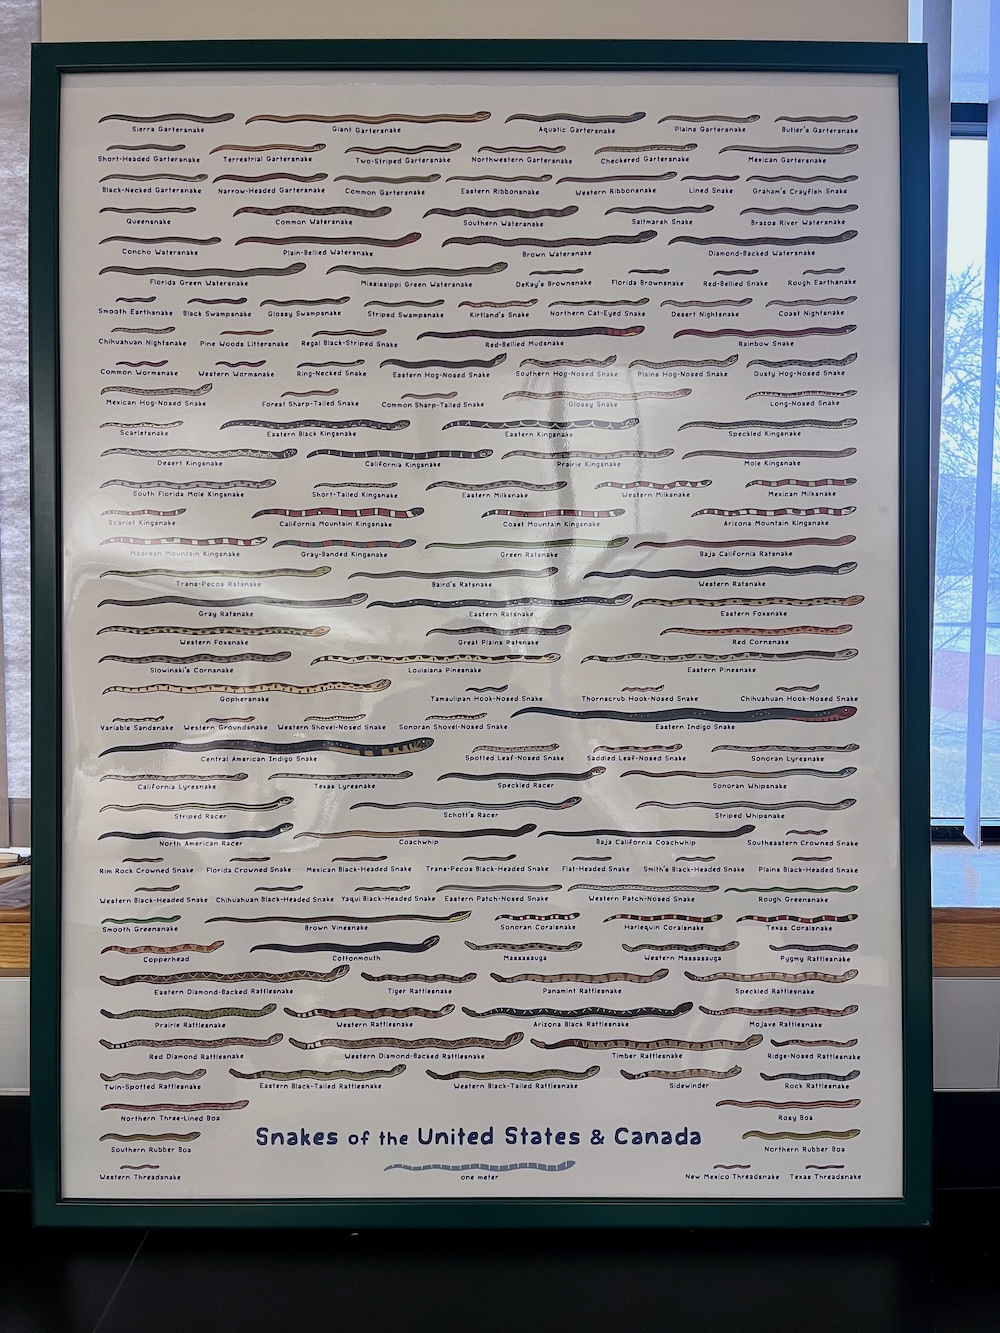 Sierra Gartersnake Giant Gartersnake Aquatic Gartersnake Plains Gartersnake Butler's Gartersnake
Short-Headed Gartersnake Terrestrial Gartersnake Two-Striped Gartersnake Northwestern Gartersnake Checkered Gartersnake Mexican Gartersnake
Black-Necked Gartersnake Narrow-Headed Gartersnake Common Gartersnake Eastern Ribbonsnake Western Ribbonsnake Lined Snake Graham's Crayfish Snake
Queensnake Common Watersnake Southern Watersnake Saltmarsh Snake Brazos River Watersnake
Concho Watersnake Plain-Bellied Watersnake Brown Watersnake Diamond-Backed Watersnake
Florida Green Watersnake Mississippi Green Watersnake DeKay's Brownsnake Florida Brownsnake Red-Bellied Snake Rough Earthsnake
Smooth Earthsnake Black Swampsnake Glossy Swampsnake Striped Swampsnake Kirtland's Snake Northern Cat-Eyed Snake Desert Nightsnake Coast Nightsnake
Chihuahuan Nightsnake Pine Woods Littersnake Regal Black-Striped Snake Red-Bellied Mudsnake Rainbow Snake
Common Wormsnake Western Wormsnake Ring-Necked Snake Eastern Hog-Nosed Snake Southern Hog-Nosed Snake Plains Hog-Nosed Snake Dusty Hog-Nosed Snake
Mexican Hog-Nosed Snake Forest Sharp-Tailed Snake Common Sharp-Tailed Snake Glossy Snake Long-Nosed Snake
Scarletsnake Eastern Black Kingsnake Eastern Kingsnake Speckled Kingsnake
Desert Kingsnake California Kingsnake Prairie Kingsnake Mole Kingsnake
South Florida Mole Kingsnake Short-Tailed Kingsnake Eastern Milksnake Western Milksnake Mexican Milksnake
Scarlet Kingsnake California Mountain Kingsnake Coast Mountain Kingsnake Arizona Mountain Kingsnake
Madrean Mountain Kingsnake Gray-Banded Kingsnake Green Ratsnake Baja California Ratsnake
Trans-Pecos Ratsnake Baird's Ratsnake Western Ratsnake
Gray Ratsnake Eastern Ratsnake Eastern Foxsnake
Western Foxsnake Great Plains Ratsnake Red Cornsnake
Slowinski's Cornsnake Louisiana Pinesnake Eastern Pinesnake
Gophersnake Tamaulipan Hook-Nosed Snake Thornscrub Hook-Nosed Snake Chihuahuan Hook-Nosed Snake
Variable Sandsnake Western Groundsnake Western Shovel-Nosed Snake Sonoran Shovel-Nosed Snake Eastern Indigo Snake
Central American Indigo Snake Spotted Leaf-Nosed Snake Saddled Leaf-Nosed Snake Sonoran Lyresnake
California Lyresnake Texas Lyresnake Speckled Racer Sonoran Whipsnake
Striped Racer Schott's Racer Striped Whipsnake
North American Racer Coachwhip Baja California Coachwhip Southeastern Crowned Snake
Rim Rock Crowned Snake Florida Crowned Snake Mexican Black-Headed Snake Trans-Pecos Black-Headed Snake Flat-Headed Snake Smith's Black-Headed Snake Plains Black-Headed Snake
Western Black-Headed Snake Chihuahuan Black-Headed Snake Yaqui Black-Headed Snake Eastern Patch-Nosed Snake Western Patch-Nosed Snake Rough Greensnake
Smooth Greensnake Brown Vinesnake Sonoran Coralsnake Harlequin Coralsnake Texas Coralsnake
Copperhead Cottonmouth Massasauga Western Massasauga Pygmy Rattlesnake
Eastern Diamond-Backed Rattlesnake Tiger Rattlesnake Panamint Rattlesnake Speckled Rattlesnake
Prairie Rattlesnake Western Rattlesnake Arizona Black Rattlesnake Mojave Rattlesnake
Red Diamond Rattlesnake Western Diamond-Backed Rattlesnake Timber Rattlesnake Ridge-Nosed Rattlesnake
Twin-Spotted Rattlesnake Eastern Black-Tailed Rattlesnake Western Black-Tailed Rattlesnake Sidewinder Rock Rattlesnake
Northern Three-Lined Boa Rosy Boa
Snakes of the United States & Canada
Southern Rubber Boa Northern Rubber Boa
Western Threadsnake one meter New Mexico Threadsnake Texas Threadsnake